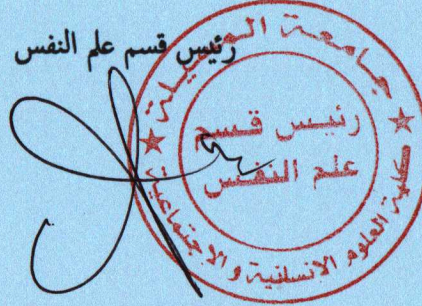 رئيس قسم علم النفس
جامعة المسيلة
رئيس قسم
علم النفس
كلية العلوم الانسانية و الاجتماعية